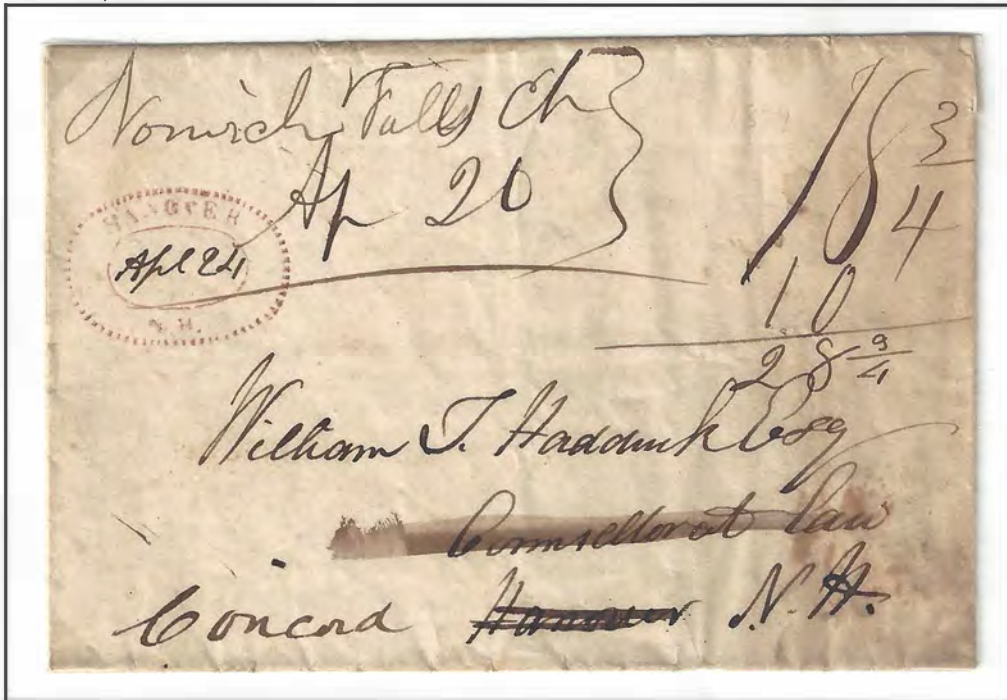 Norwich Falls Ch
Ap 20
18 3/4
HANOVER
Apl 24
N.H.
10
28 3/4
William T. Hadduck Esq
Counsellor at Law
Concord Hanover N.H.